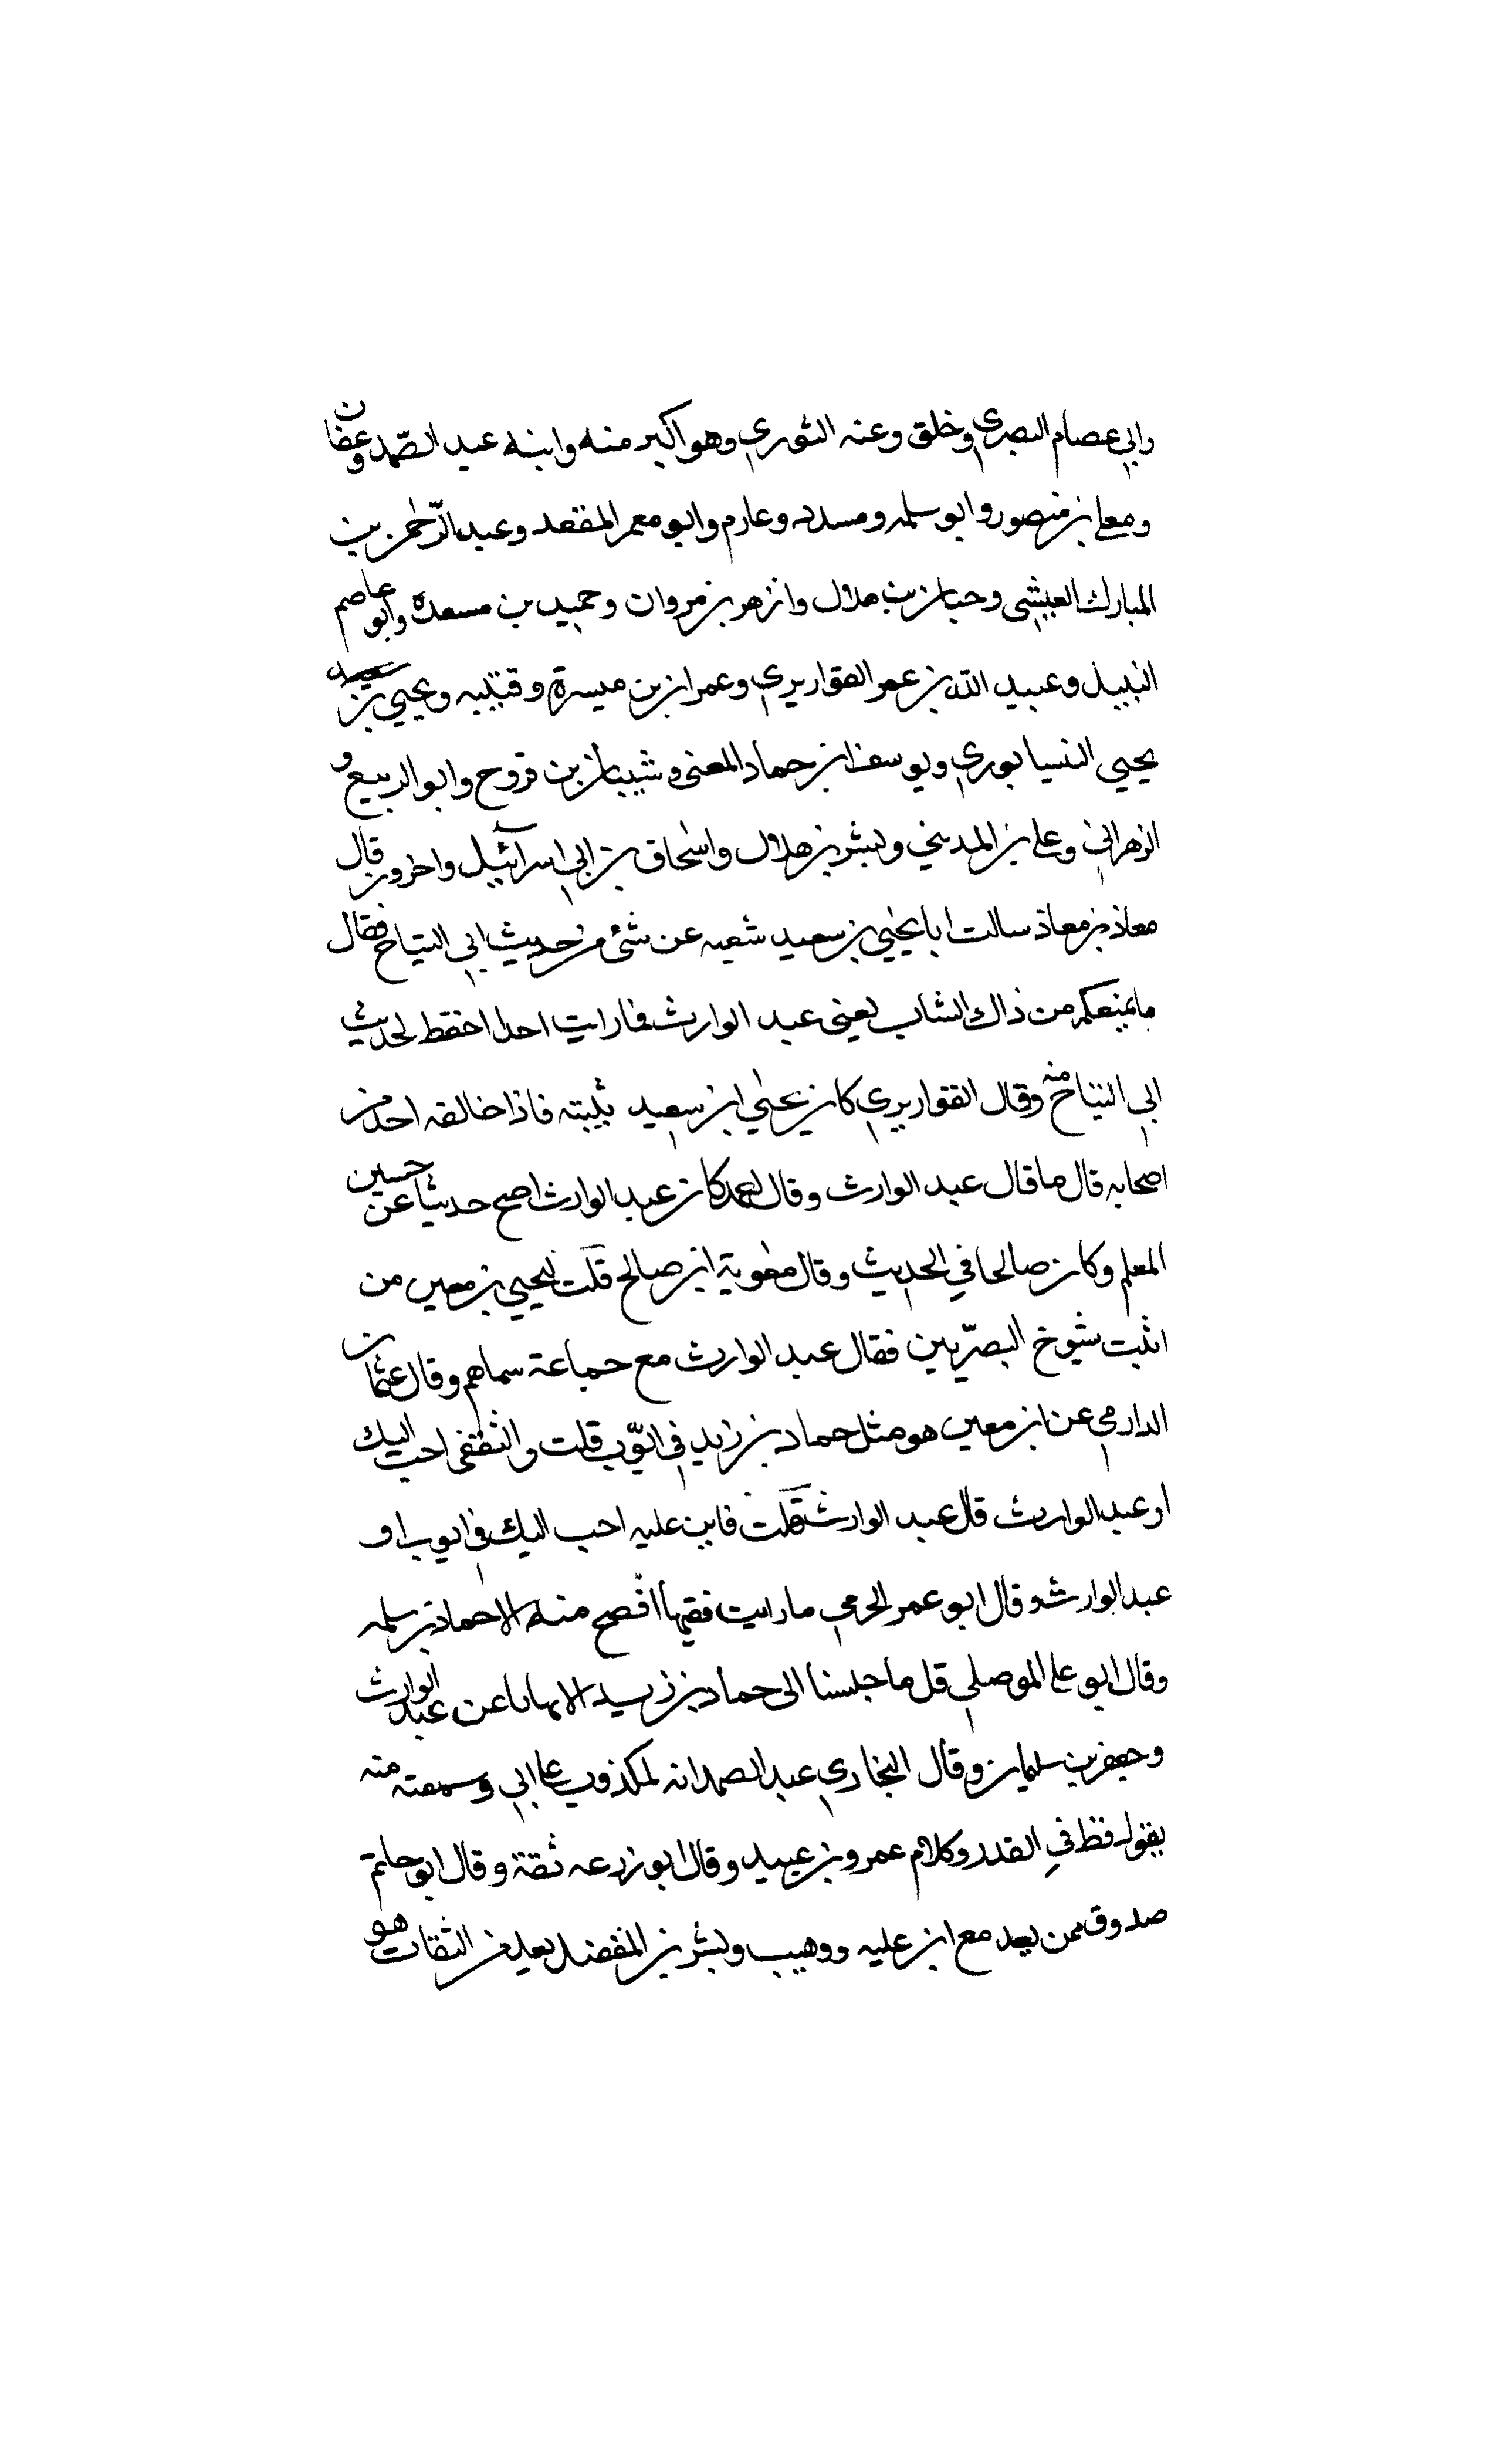 وابي عصام البصري وخلق وعنه الثوري وهو اكبر منه وابنه عبد الصّمد وعفان
ومعلي بن منصور وابو سلمه ومسدد وعارم وابو معمر المقعد وعبد الرّحمن بن
المبارك العيشي وحبان بن هلال وازهر بن مروان وحميد بن مسعدة وابو عاصم
النبيل وعبيد الله بن عمر القواريري وعمران بن ميسرة وقتيبه ويحيي بن سعيد
يحيي النيسابوري ويوسف ابن حماد المعنى وشيبان بن فروح وابو الربيع و
الزهراني وعلي بن المديني وبشر بن هلال واسحاق بن ابي اسرآئيل واخرون قال
معاذ بن معاذ سالت ابا يحيي بن سعيد شعبه عن شئ من حديث ابي التياح فقال
ما يمنعكم من ذاك الشاب يعني عبد الوارث فما رايت احدا احفظ لحديث
ابي التياح منه وقال القواريري كان يحيي ابن سعيد يثبته فاذا خالفه احد من
اصحابه قال ما قال عبد الوارث وقال احمد كان عبد الوارث اصح حديثا عن حسين
المعلم وكان صالحا في الحديث وقال معوية ابن صالح قلت ليحيي بن معين من
اثبت شيوخ البصرّيين فقال عبد الوارث مع جماعة سماهم وقال عثمان
الدارمي عن ابن معين هو مثل حماد بن زيد في ايّوب قلت والثقفي احب اليك
او عبد الوارث قال عبد الوارث قلت فابن عليه احب اليك في ايوب او
عبد الوارث وقال ابو عمر الجرمي ما رايت فقيها افصح منه الا حماد بن سلمه
وقال ابو علي الموصلي قل ما جلسنا الى حماد بن زيد الا نهانا عن عبد الوارث
وجعفر بن سليمان وقال البخاري عبد الصمد انه لمكذوب علي ابي وسمعته منه
يقول قط في القدر وكلام عمرو بن عبيد وقال ابو زرعه ثقة وقال ابو حاتم
صدوق ممن يعد مع ابن عليه ووهيب وبشر بن المفضل يعد من الثقات هو